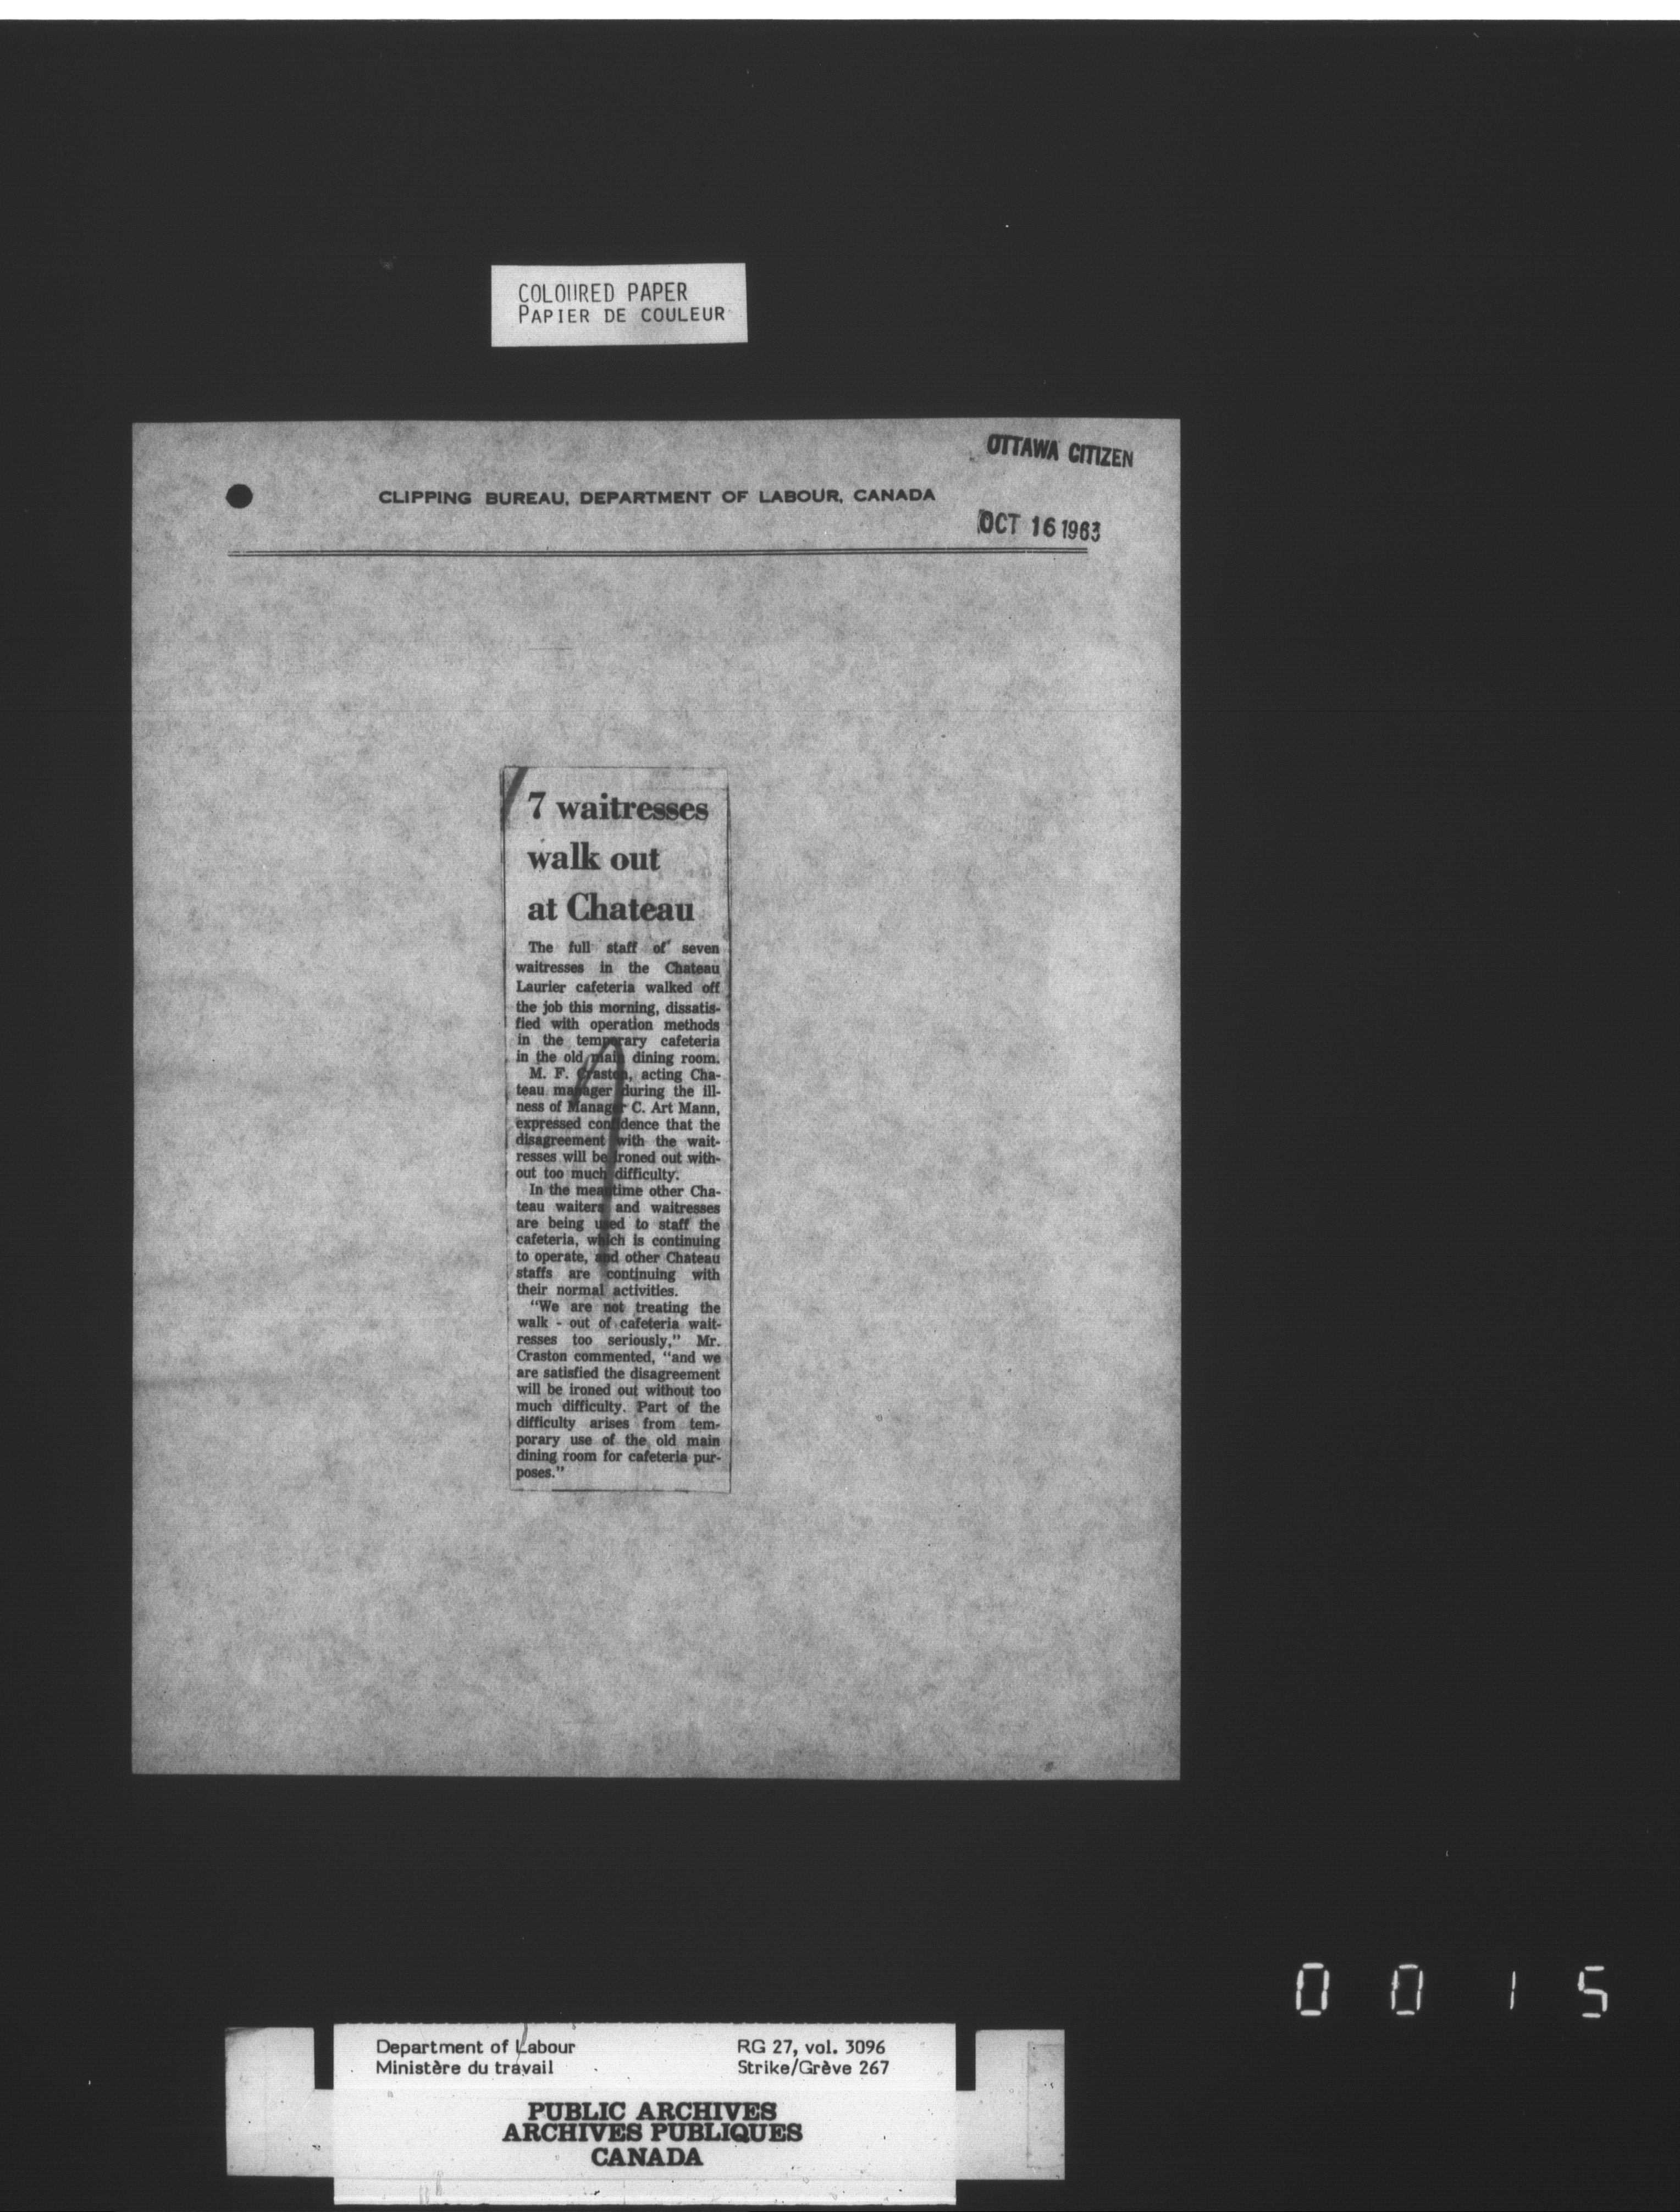 COLOURED PAPER
PAPIER DE COULEUR
OTTAWA CITIZEN
CLIPPING BUREAU, DEPARTMENT OF LABOUR, CANADA
OCT 16 1963
7 waitresses
walk out
at Chateau
The full staff of seven
waitresses in the Chateau
Laurier cafeteria walked off
the job this morning, dissatis-
fied with operation methods
in the temporary cafeteria
in the old main dining room.
M. F. Craston, acting Cha-
teau manager during the ill-
ness of Manager C. Art Mann,
expressed confidence that the
disagreement with the wait-
resses will be ironed out with-
out too much difficulty.
In the meantime other Cha-
teau waiters and waitresses
are being used to staff the
cafeteria, which is continuing
to operate, and other Chateau
staffs are continuing with
their normal activities.
"We are not treating the
walk - out of cafeteria wait-
resses too seriously," Mr.
Craston commented, "and we
are satisfied the disagreement
will be ironed out without too
much difficulty. Part of the
difficulty arises from tem-
porary use of the old main
dining room for cafeteria pur-
poses."
0 0 1 5
Department of Labour
Ministère du travail
RG 27, vol. 3096
Strike/Grève 267
PUBLIC ARCHIVES
ARCHIVES PUBLIQUES
CANADA